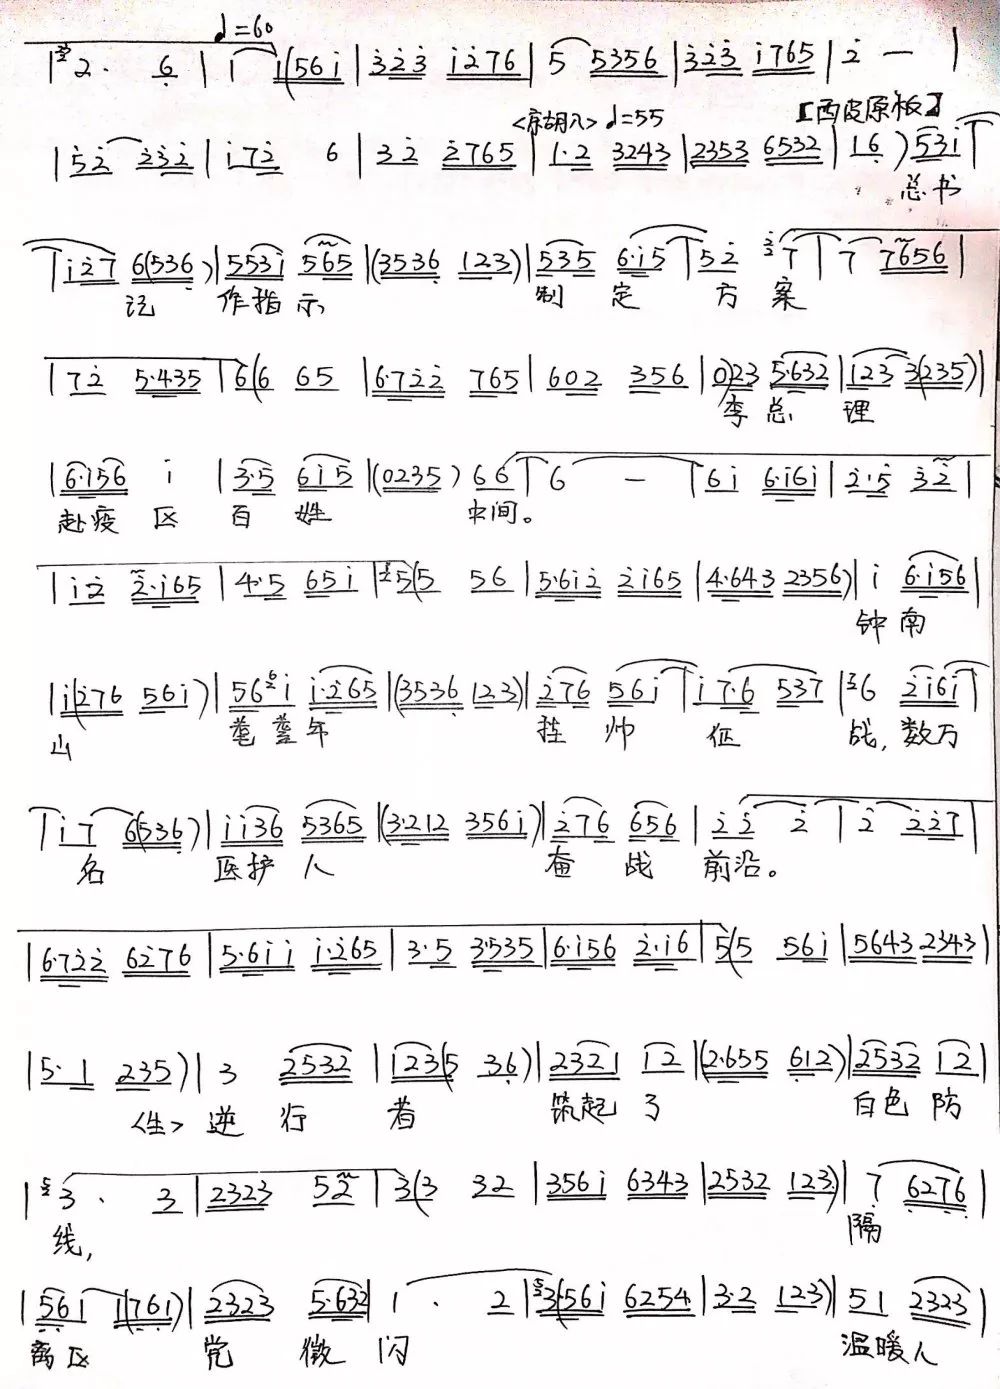 ♩=60
|2· 6|i i(56i|323 i276|5 5356|323 i765|2 — |
<京胡入>♩=55 【西皮原板】
|52 232|i72 6|32 2765|1·2 3243|2353 6532|16)53i|
总书
|i27 6(536)|553i 565|(3536 123)|535 6·i5|52 7|7 7656|
记 作指示, 制定方案
|72 5·435|6(6 65|6·722 765|602 356|0)23 5·632|123 3(235)|
李总理
|6·156 i|3·5 6i5|(0235) 66|6 — |6i 6·i6i|2·5 32|
赴疫区 百姓 中间。
|i2 2·i65|4·5 65i|5(5 56|5·6i2 2i65|4·643 2356)|i 6·i56|
钟南
|i(276 56i)|56i i·265|(3536 123)|276 56i|i7·6 537|6 2i6i|
山 耄耋年 挂帅征战,数万
|i7 6(536)|ii36 5365|(3·212 356i)|276 656|22 2|2 227|
名 医护人 奋战前沿。
|6·722 6276|5·6ii i·265|3·5 3·535|6·i56 2·i6|5(5 56i|5643 2343|
|5·1 235)|3 2532|123(5 36)|2321 12|(2·655 612)|2532 12|
<生>逆行者 筑起了 白色防
|3· 3|2323 52|3(3 32|356i 6343|2532 123)|7 6276|
线, 隔
|561 1(761)|2323 5·632|1· 2|3(56i 6254|3·2 123)|51 2323|
离区 党徽闪 温暖人